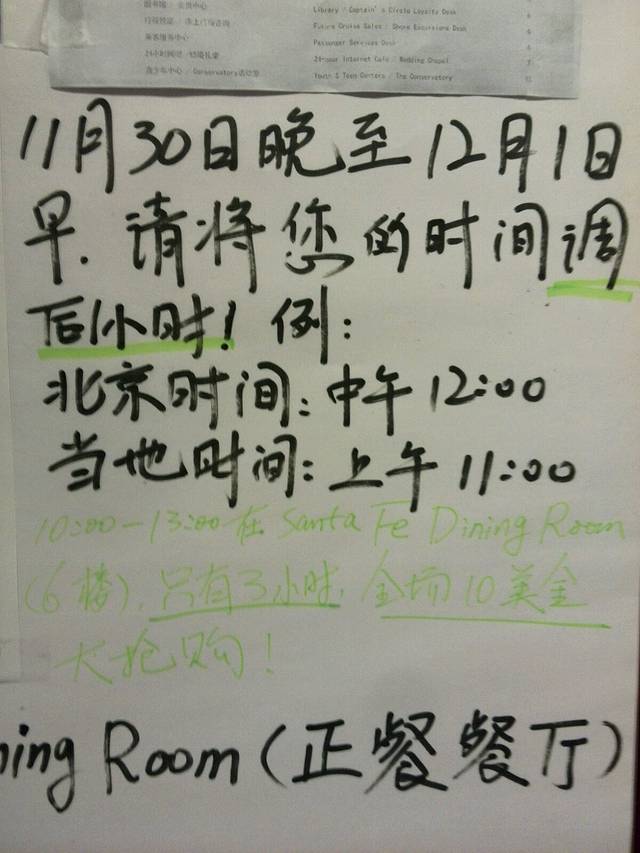 Library / Captain's Circle Loyalty Desk
Future Cruise Sales / Shore Excursions Desk
乘客服务中心 Passenger Services Desk
24-hour Internet Cafe / Wedding Chapel
青少年中心 / Conservatory Youth & Teen Centers / The Conservatory
11月30日晚至12月1日
早.请将您的时间调
后1小时!例:
北京时间:中午12:00
当地时间:上午11:00
10:00-13:00在Santa Fe Dining Room
(6楼),只有3小时,全场10美金
大抢购!
ning Room(正餐餐厅)